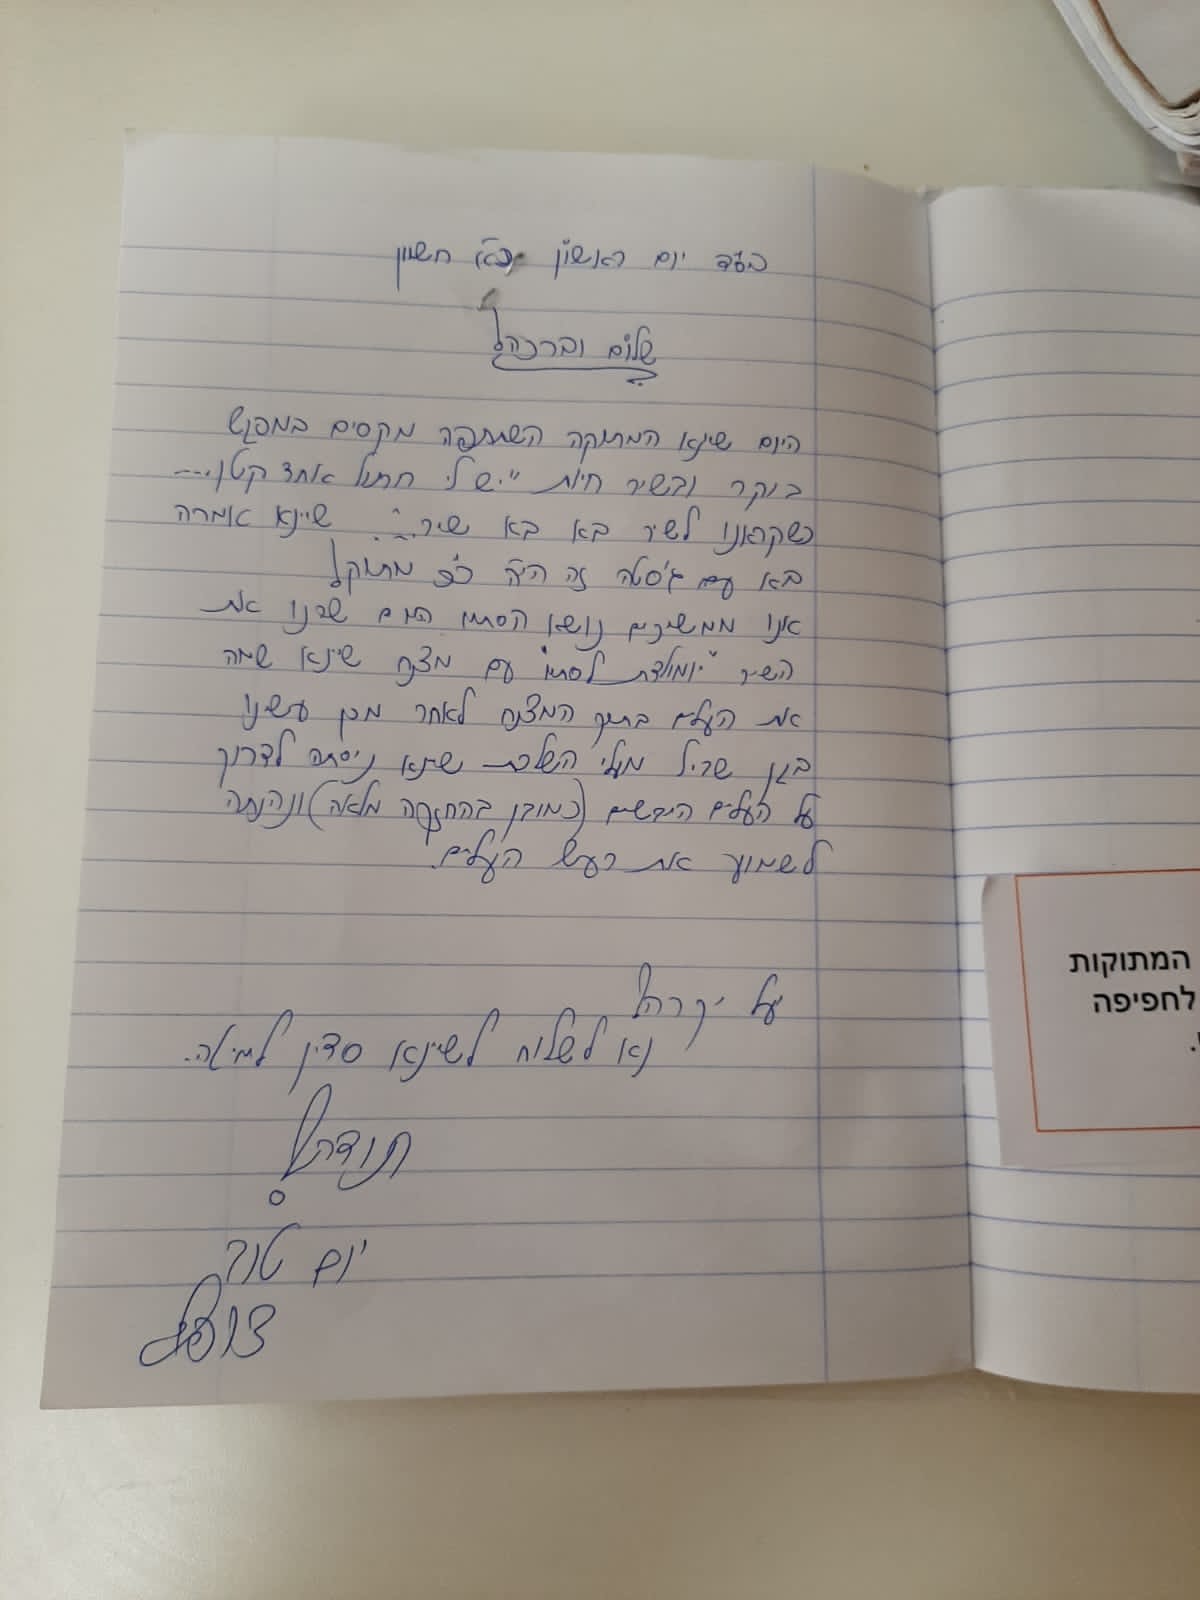 בס״ד יום ראשון כ״א חשוון
שלום וברכה!
היום שיינא המתוקה השתתפה מקסים במפגש
בוקר ובשיר חיות "יש לי חתול אחד קטן....
כשקראנו לשיר בא בא שיר..״. שיינא אמרה
בא עם ג'סטה זה היה כ״כ מתוק!
אנו ממשיכים נושא הסתיו היום שרנו את
השיר "יומולדת לסתיו" עם מצנח שיינא שמה
את העלים בתוך המצנח לאחר מכן עשינו
בגן שביל מעלי השלכת שיינא ניסתה לדרוך
על העלים היבשים (כמובן בהחזקה מלאה) ונהנתה
לשמוע את רעש העלים.
יעל יקרה!
נא לשלוח לשיינא סדין למיטה.
תודה!
יום טוב
המתוקות
לחפיפה